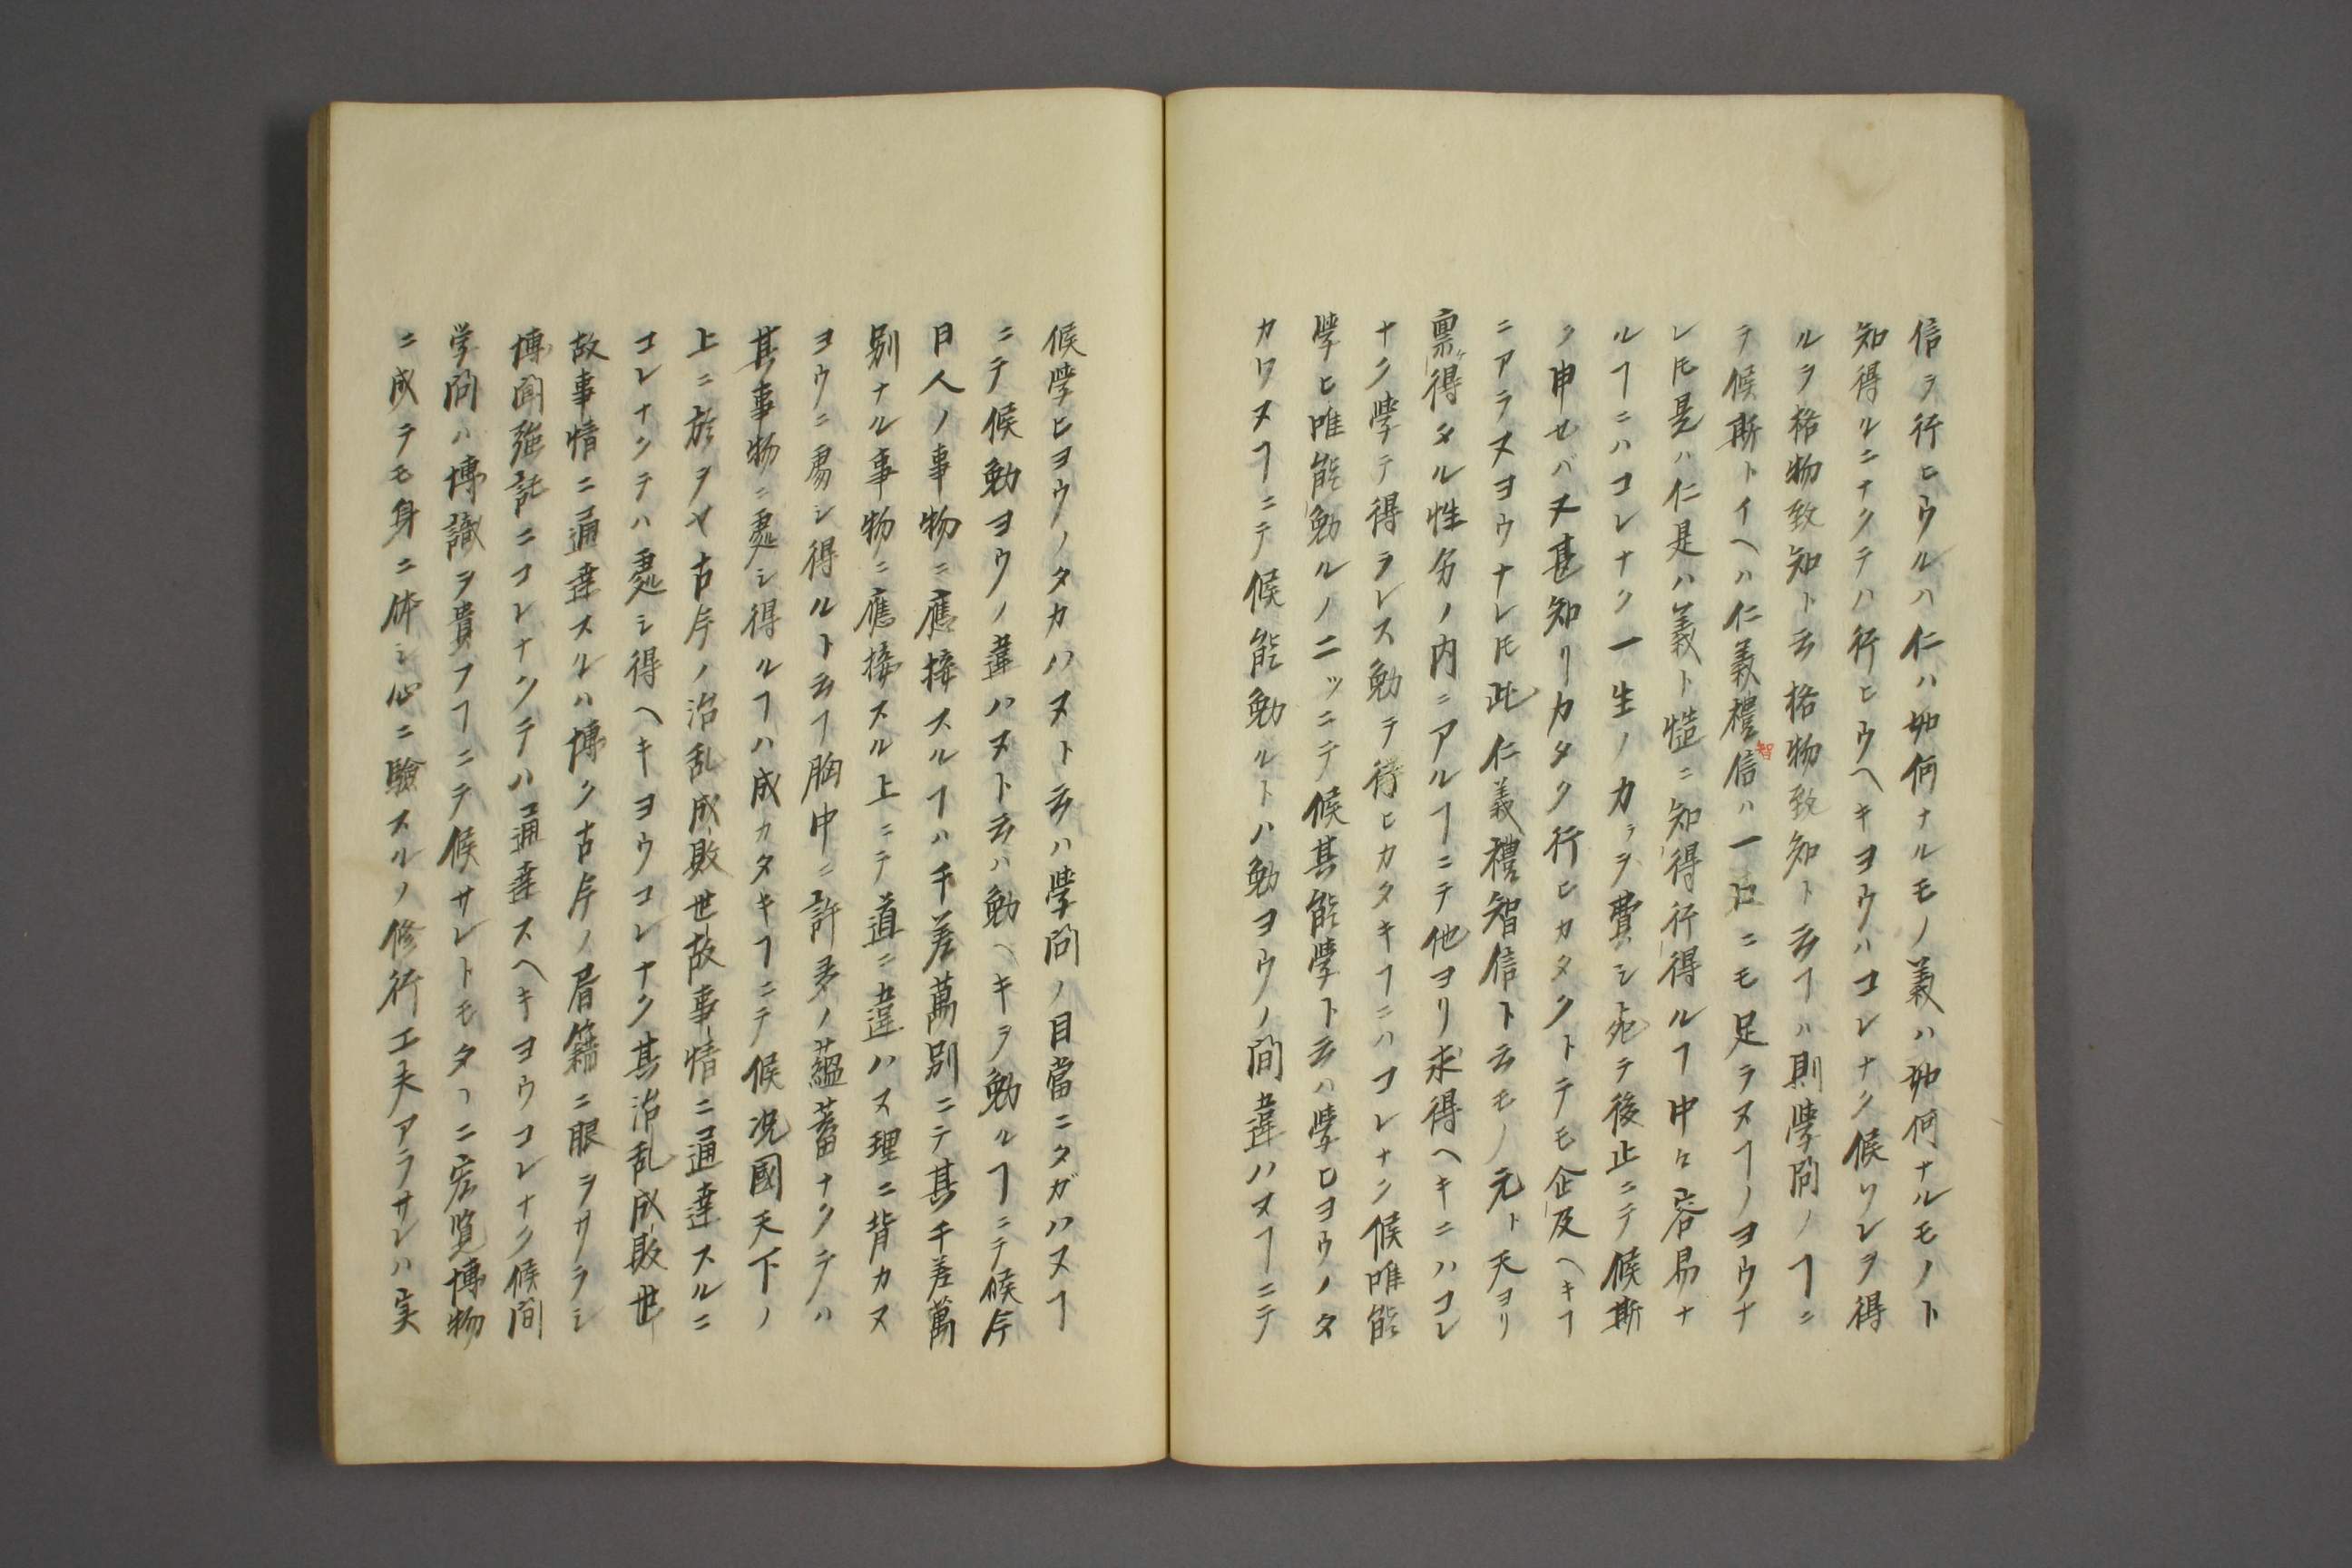 信ヲ行ヒウルハ仁ハ如何ナルモノ義ハ如何ナルモノト
知得ルニナクテハ行ヒウヘキヨウハコレナク候ソレヲ得
ルヲ格物致知ト云格物致知ト云フヿハ則學問ノヿニ
テ候斯トイヘハ仁義禮智信ハ一口ニモ足ラヌヿノヨウナ
レ𪜈是ハ仁是ハ義ト慥ニ知得行得ルヿ中々容易ナ
ルヿニハコレナク一生ノ力ラヲ費シ死テ後止ニテ候斯
ク申セバ又甚知リカタク行ヒカタクトテモ企及ヘキヿ
ニアラヌヨウナレ𪜈此仁義禮智信ト云モノ元ト天ヨリ
禀ケ得タル性分ノ内ニアルヿニテ他ヨリ求得ヘキニハコレ
ナク學テ得ラレス勉テ得ヒカタキヿニハコレナク候唯能
學ヒ唯能勉ルノ二ツニテ候其能學ト云ハ學ヒヨウノタ
カワヌヿニテ候能勉ルトハ勉ヨウノ間違ハヌヿニテ
候學ヒヨウノタカハヌト云ハ學問ノ目當ニタガハヌヿ
ニテ候勉ヨウノ違ハヌト云ハ勉ヘキヲ勉ルヿニテ候今
日人ノ事物ニ應接スルヿハ千差萬別ニテ其千差萬
別ナル事物ニ應接スル上ニテ道ニ違ハス理ニ背カヌ
ヨウニ處シ得ルト云ヿ胸中ニ許多ノ蘊蓄ナクテハ
其事物ニ處シ得ルヿハ成カタキヿニテ候況國天下ノ
上ニ於ヲヤ古今ノ治乱成敗世故事情ニ通達スルニ
コレナクテハ處シ得ヘキヨウコレナク其治乱成敗世
故事情ニ通達スルハ博ク古今ノ書籍ニ眼ヲサラシ
博聞強記ニコレナクテハ通達スヘキヨウコレナク候間
学問ハ博識ヲ貴フヿニテ候サレトモタヽニ宏覧博物
ニ成テモ身ニ体シ心ニ驗スルノ修行工夫アラサレハ実